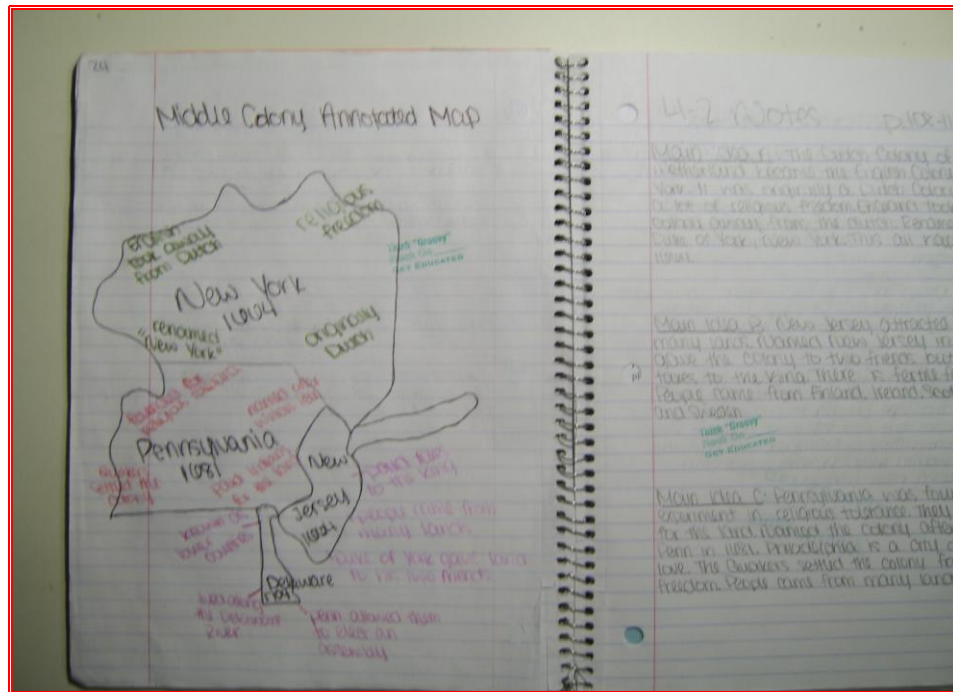 24
Middle Colony Annotated Map
English
took away
from Dutch
religious
freedom
New York
1664
"renamed
New York"
originally
Dutch
founded for
religious
named after
Pennsylvania
1681
Quakers
settled the
paid
for the land
New
Jersey
1664
paid taxes
to the king
people came from
many lands
Duke of York gave land
to his two friends
known as
lower
counties
Delaware
1704
the Delaware
River
Penn allowed them
to elect an
assembly
GET EDUCATED
4-2 Notes
Main Idea A: The Dutch Colony of
became the English Colony
York. It was originally a Dutch Colony
a lot of religious freedom. England took
colony away from the Dutch. Renamed
Duke of York, New York. This all
1664.
Main Idea B: New Jersey attracted
many lands. Named New Jersey in
gave the colony to two friends but
taxes to the King. There is fertile
People came from Finland, Ireland, Scot
and Sweden
GET EDUCATED
Main Idea C: Pennsylvania was foun
experiment in religious tolerance. They
for this land. Named the colony after
Penn in 1681. Philadelphia is a city
love. The Quakers settled the colony for
freedom. People came from many land